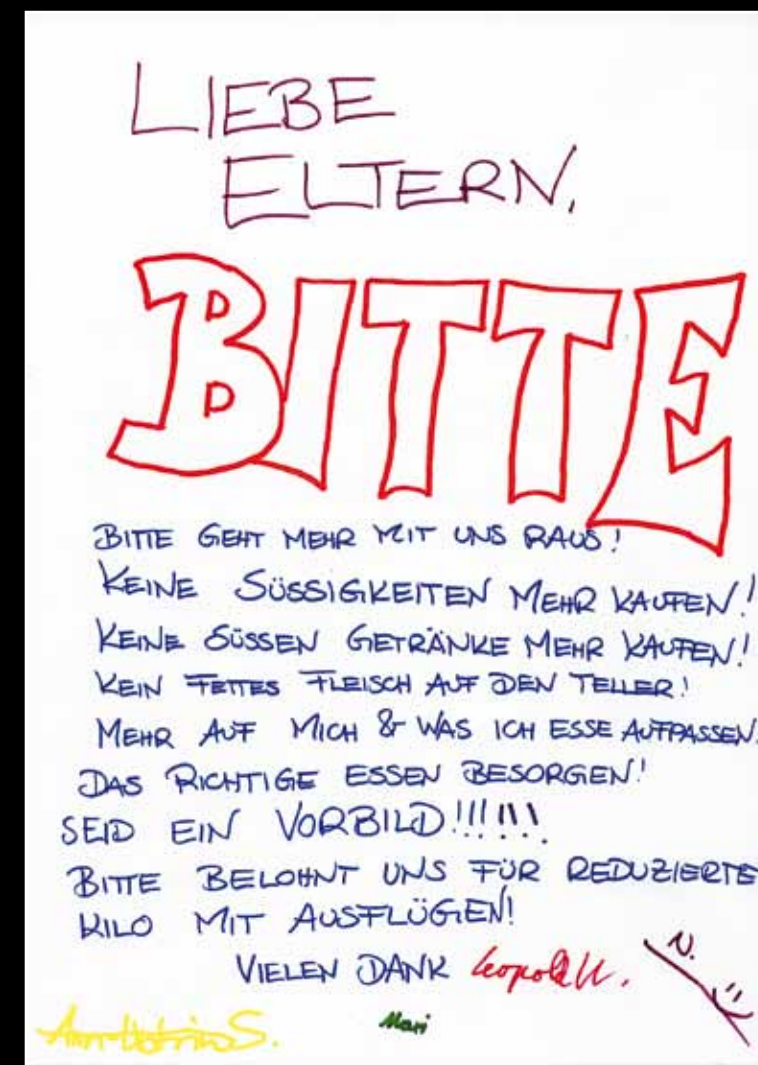 LIEBE
ELTERN,
BITTE
BITTE GEHT MEHR MIT UNS RAUS!
KEINE SÜSSIGKEITEN MEHR KAUFEN!
KEINE SÜSSEN GETRÄNKE MEHR KAUFEN!
KEIN FETTES FLEISCH AUF DEN TELLER!
MEHR AUF MICH & WAS ICH ESSE AUFPASSEN.
DAS RICHTIGE ESSEN BESORGEN!
SEID EIN VORBILD!!!!!!
BITTE BELOHNT UNS FÜR REDUZIERTE
KILO MIT AUSFLÜGEN!
VIELEN DANK Leopold N.
S.
Mari